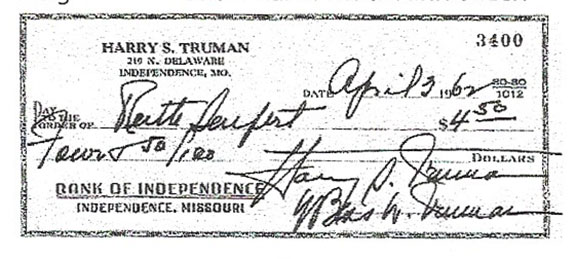 3400
HARRY S. TRUMAN
219 N. DELAWARE
INDEPENDENCE, MO.
DATE April 3 1962 80-80
1012
PAY
TO THE
ORDER OF Ruth Seufert $4 50
Four & 50/100 DOLLARS
Harry S. Truman
BANK OF INDEPENDENCE
INDEPENDENCE, MISSOURI
Bess W. Truman